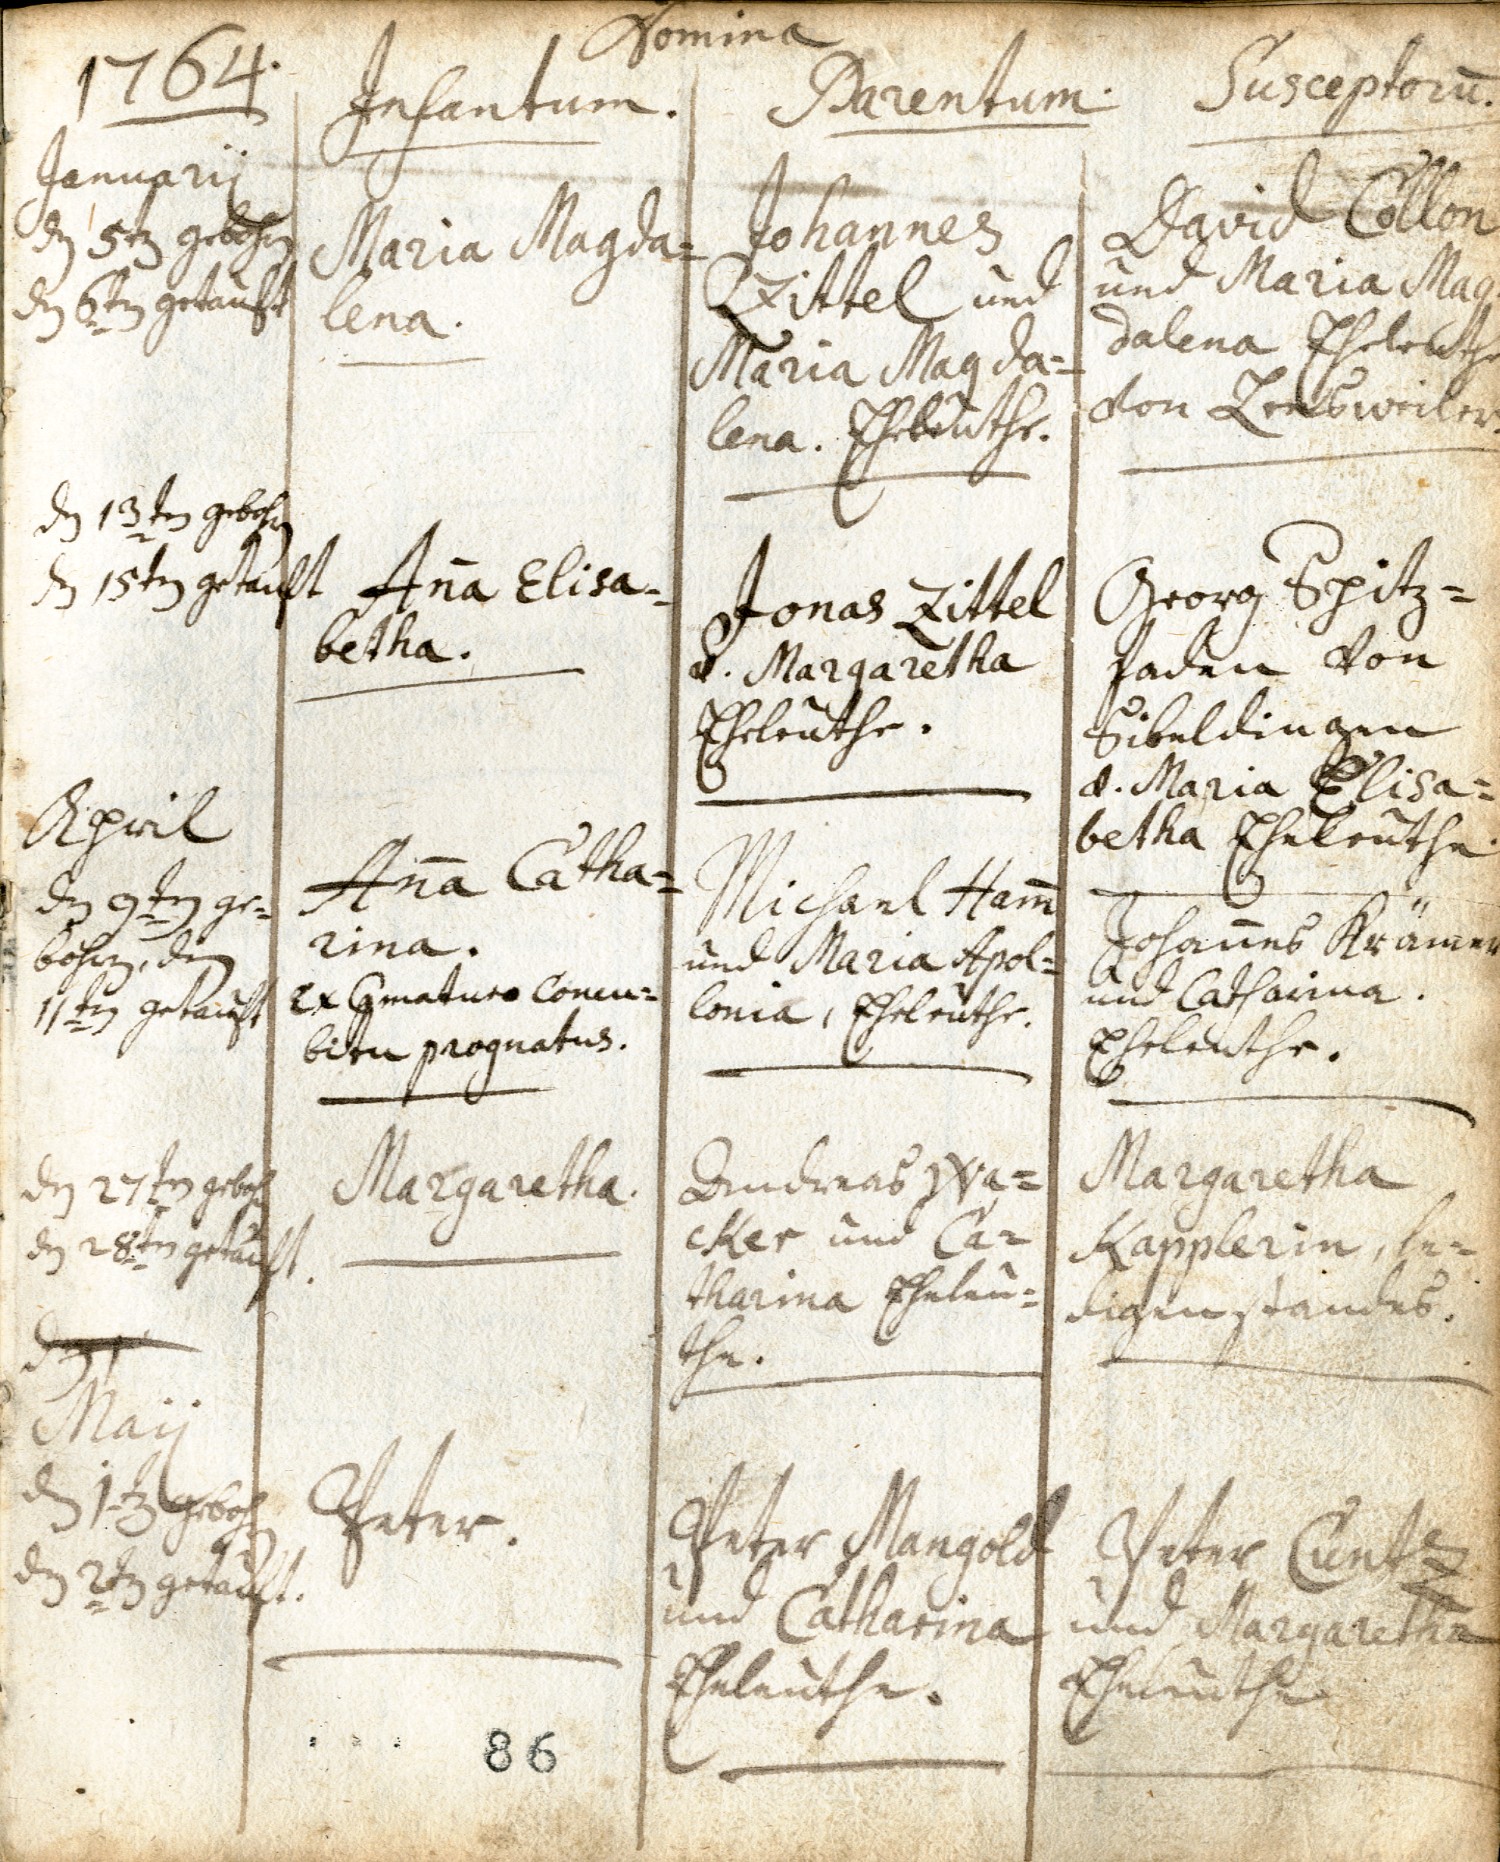 Nomina
1764.
Infantum.
Parentum.
Susceptorū.
Januarij
den 5ten gebohrn
den 6ten getauft
Maria Magda=
lena.
Johannes
Zittel und
Maria Magda=
lena. Eheleuthe.
David Collon
und Maria Mag
dalena Eheleuthe
von
den 13ten gebohrn
den 15ten getauft
Aña Elisa=
betha.
Jonas Zittel
v. Margaretha
Eheleuthe.
Georg Spitz=
faden von
Sibeldingen
v. Maria Elisa=
betha Eheleuthe
April
den 9ten ge=
bohrn, den
11ten getauft
Aña Catha=
rina.
ex concu=
bitu prognatus.
Michael Ham̄
und Maria Apol=
lonia, Eheleuthe.
Johañes Krämer
und Catharina.
Eheleuthe.
den 27ten gebohrn
den 28ten getauft.
Margaretha.
Andreas Wa=
cker und Ca=
tharina Eheleu=
the.
Margaretha
Kapplerin, le=
digen standes.
Maij
den 1ten gebohrn
den 2ten getauft.
Peter.
Peter Mangold
und Catharina
Eheleuthe.
Peter Cuntz
und Margaretha
Eheleuthe
86